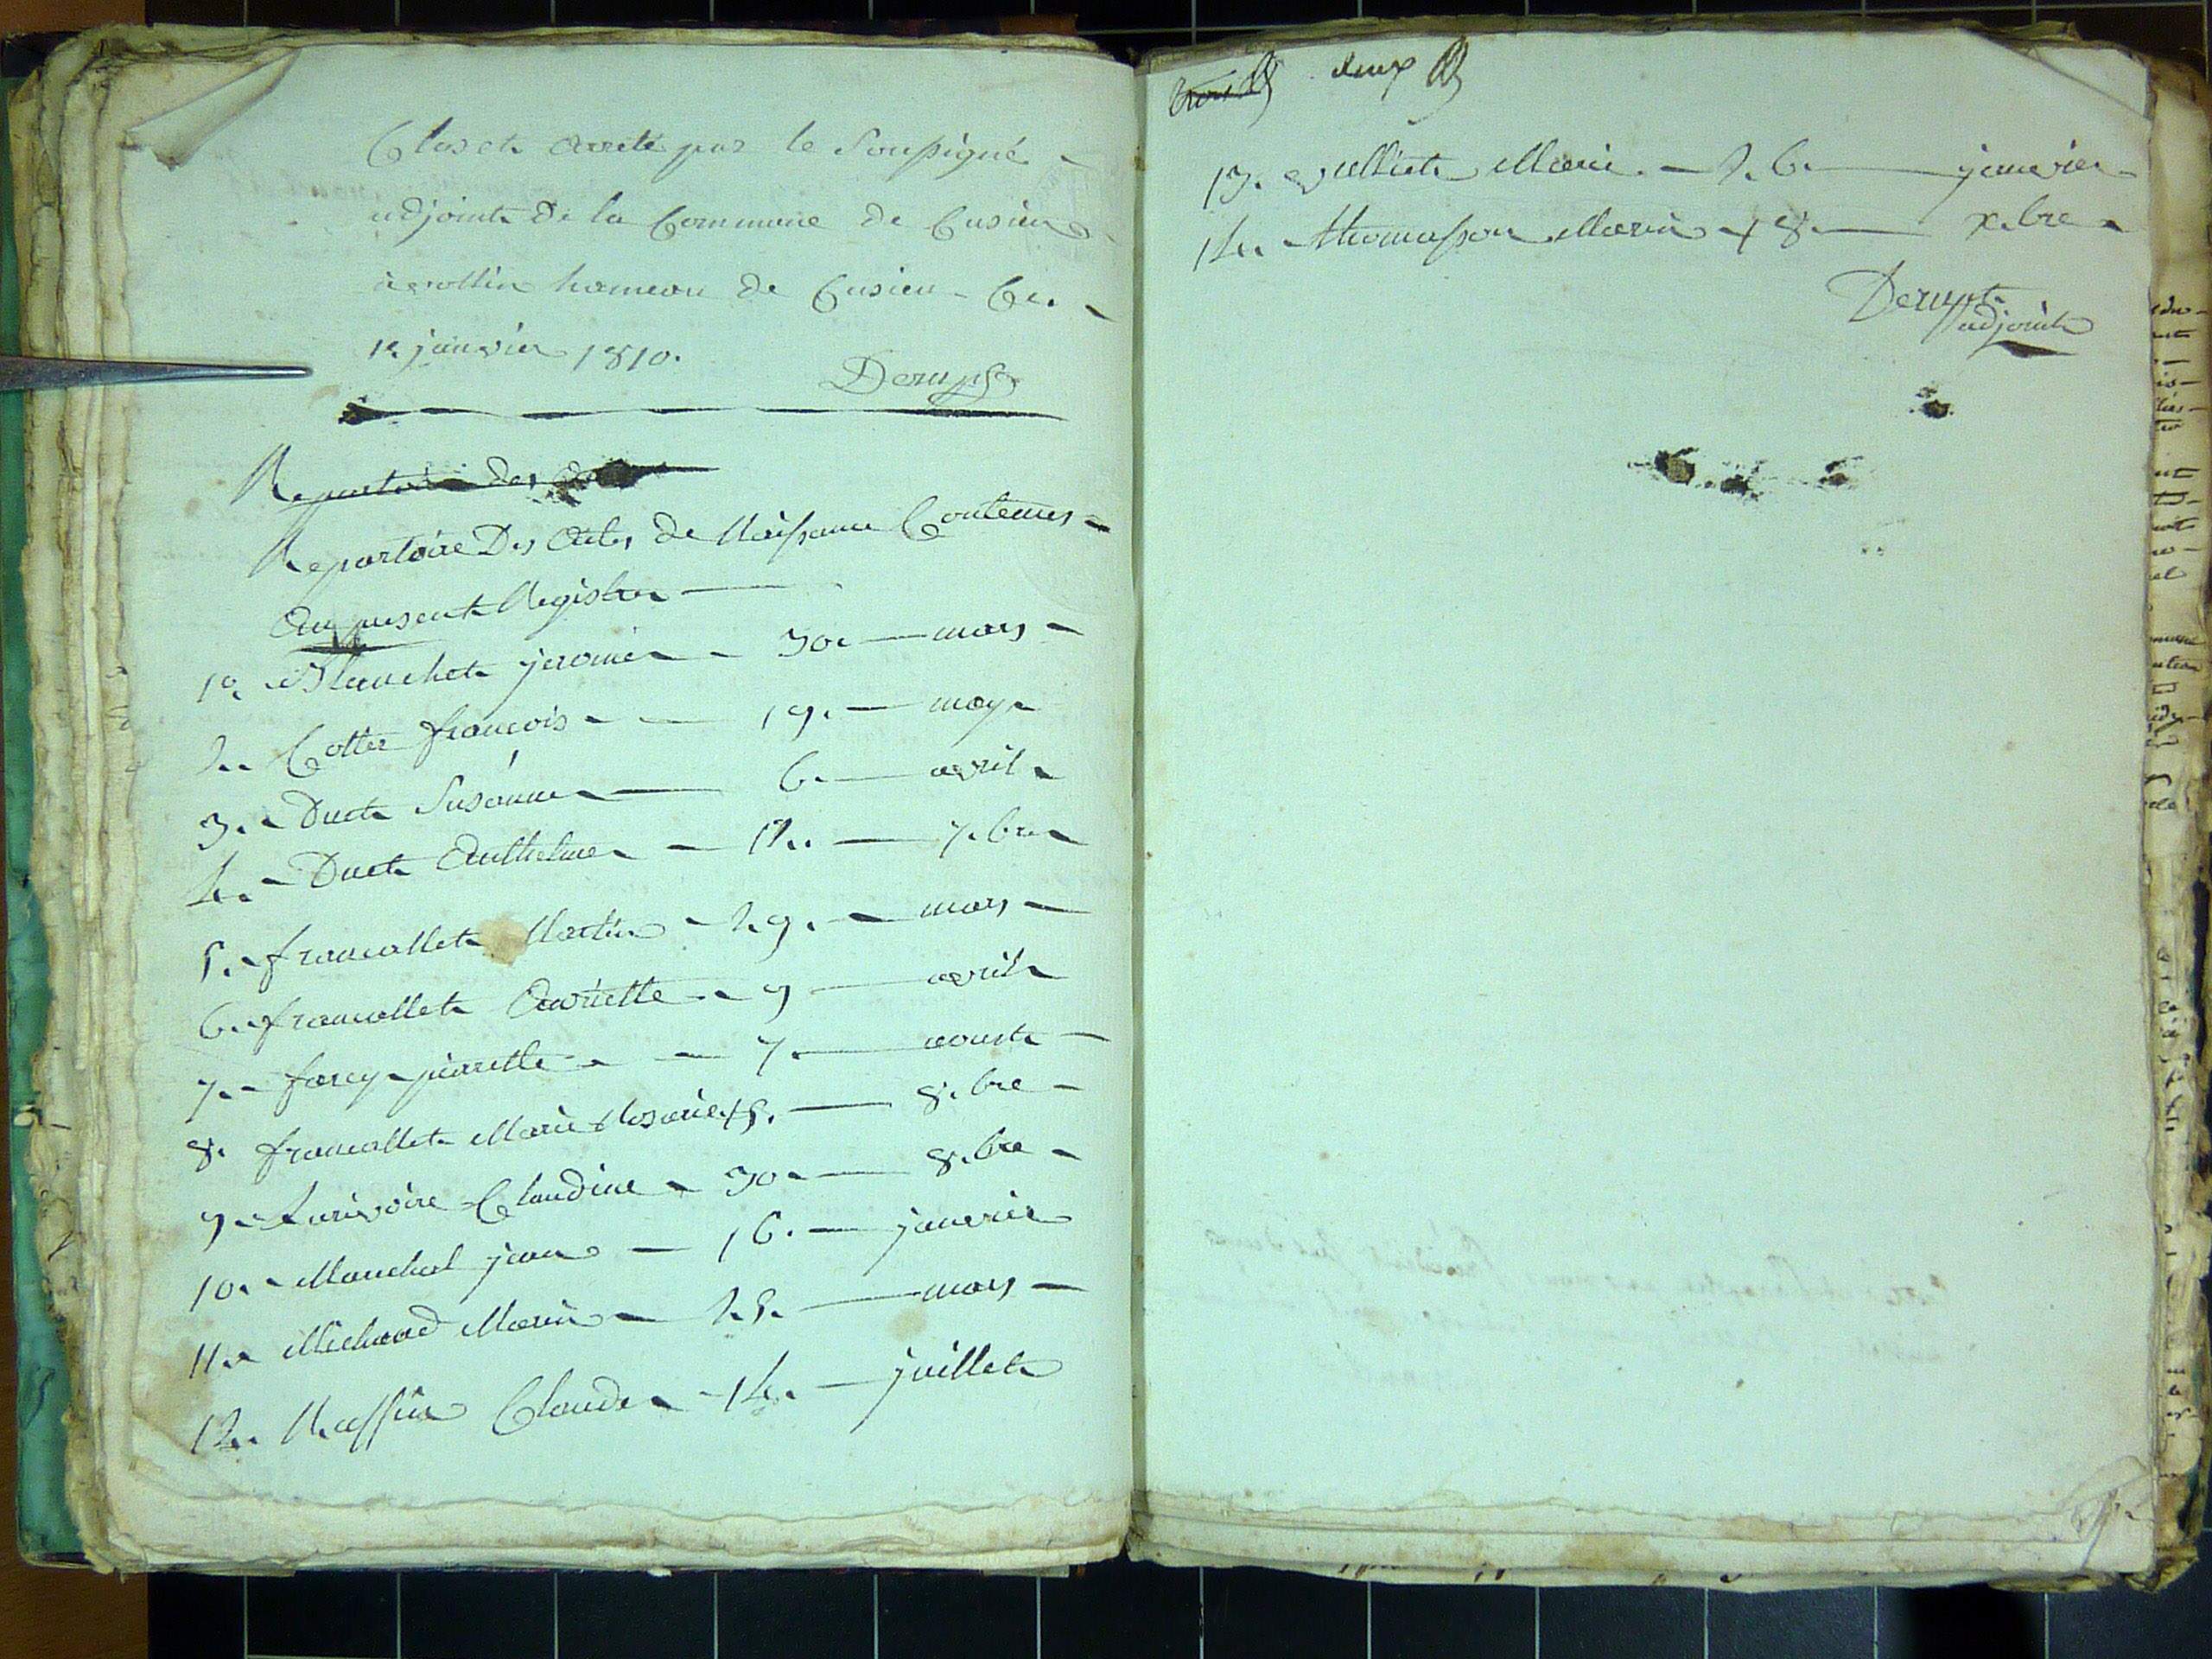 Clos et arreté par le Soussigné
adjoint de la Commune de Cusieu
à rollin hameau de Cusieu Ce.
1er janvier 1810.
Derupt
Repertoire des
Repertoire Des Actes de Naissance Contenues
Au present Registre
1º Blanchet jeromie 30. mars
2. Cotter francois 19. may
3. Duct Susanne 6. avril
4. Duct Anthelme 12. 7.bre
5. francallet Martin 29. mars
6. francallet Anriette 9 avril
7. farcy pierrette 7. aoust
8. francallet Marie 15. 8.bre
9. Larivoire Claudine 30. 8.bre
10. Marchal jean 16. janvier
11. Michaud Marie 25. mars
12. Ruffin Claude 14. juillet
trois deux
13. Marie. 26. janvier
14. thomasson Marie 18. x.bre
Derupt
adjoint